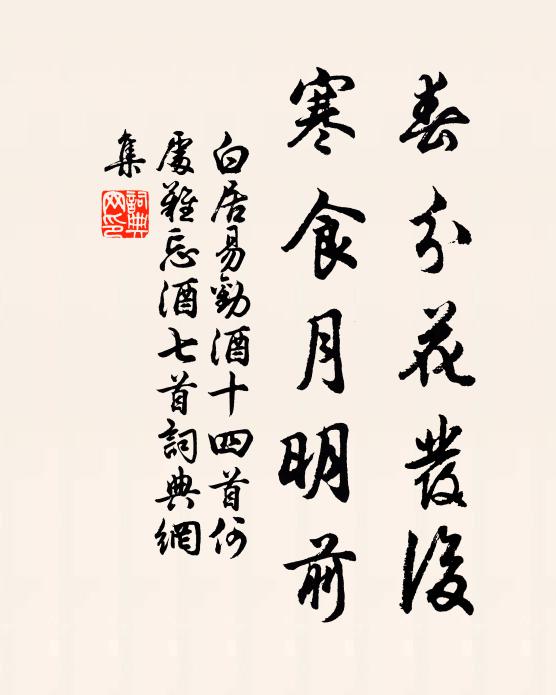 春分花發後
寒食月明前
白居易勸酒十四首何
處難忘酒七首詞典網
集
詞典網印